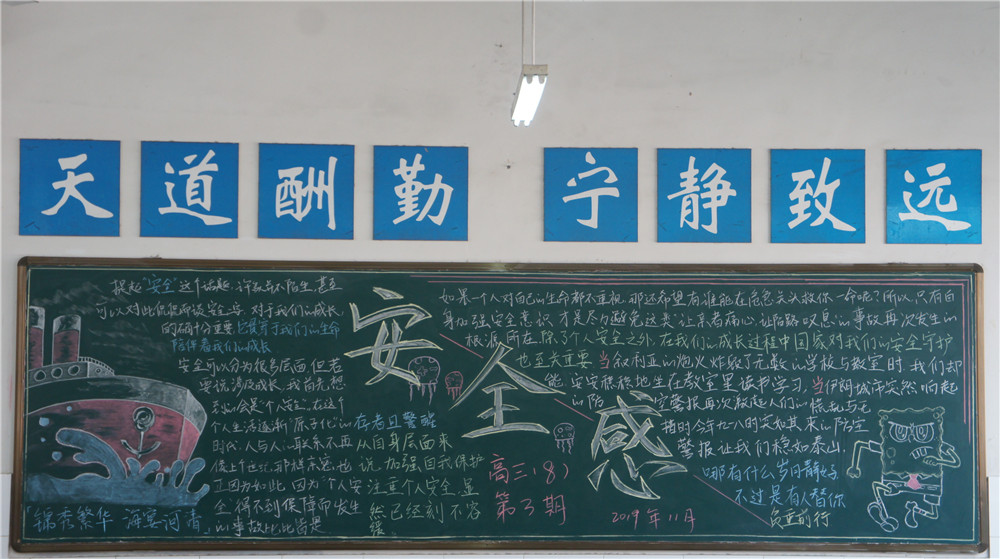 天道酬勤 宁静致远
提起“安全”这个话题，许多人不陌生，甚至
可以对此侃侃而谈，安全，对于我们的成长
的确十分重要，它贯穿于我们的生命
陪伴着我们的成长
安全可以分为很多层面，但若
要说涉及成长，我首先想
到的会是个人安全。在这个
个人生活逐渐“原子化”的
时代，人与人的联系不再
像上个世纪那样亲密，也
正因为如此，因为个人安
全得不到保障而发生
的事故比比皆是
存者且警醒
从自身层面来
说，加强自我保护
注重个人安全，显
然已经刻不容
缓
锦秀繁华 海宴河清
安全感
高三（8）
第3期
如果一个人对自己的生命都不重视，那还希望有谁能在危急关头救你一命呢？所以，只有自
身加强安全意识，才是尽力避免这类让亲者痛心，让陌路叹息的事故再次发生的
根源所在。除了个人安全之外，在我们的成长过程中国家对我们的安全守护
也至关重要。当叙利亚的炮火炸毁了无数的学校与教室时，我们却
能安安稳稳地坐在教室里读书学习，当伊朗城市突然响起
的防空警报再次激起人们的慌乱与无
措时，今年九一八的突如其来的防空
警报让我们稳如泰山，
哪有什么岁月静好，
不过是有人替你
负重前行
2019年11月